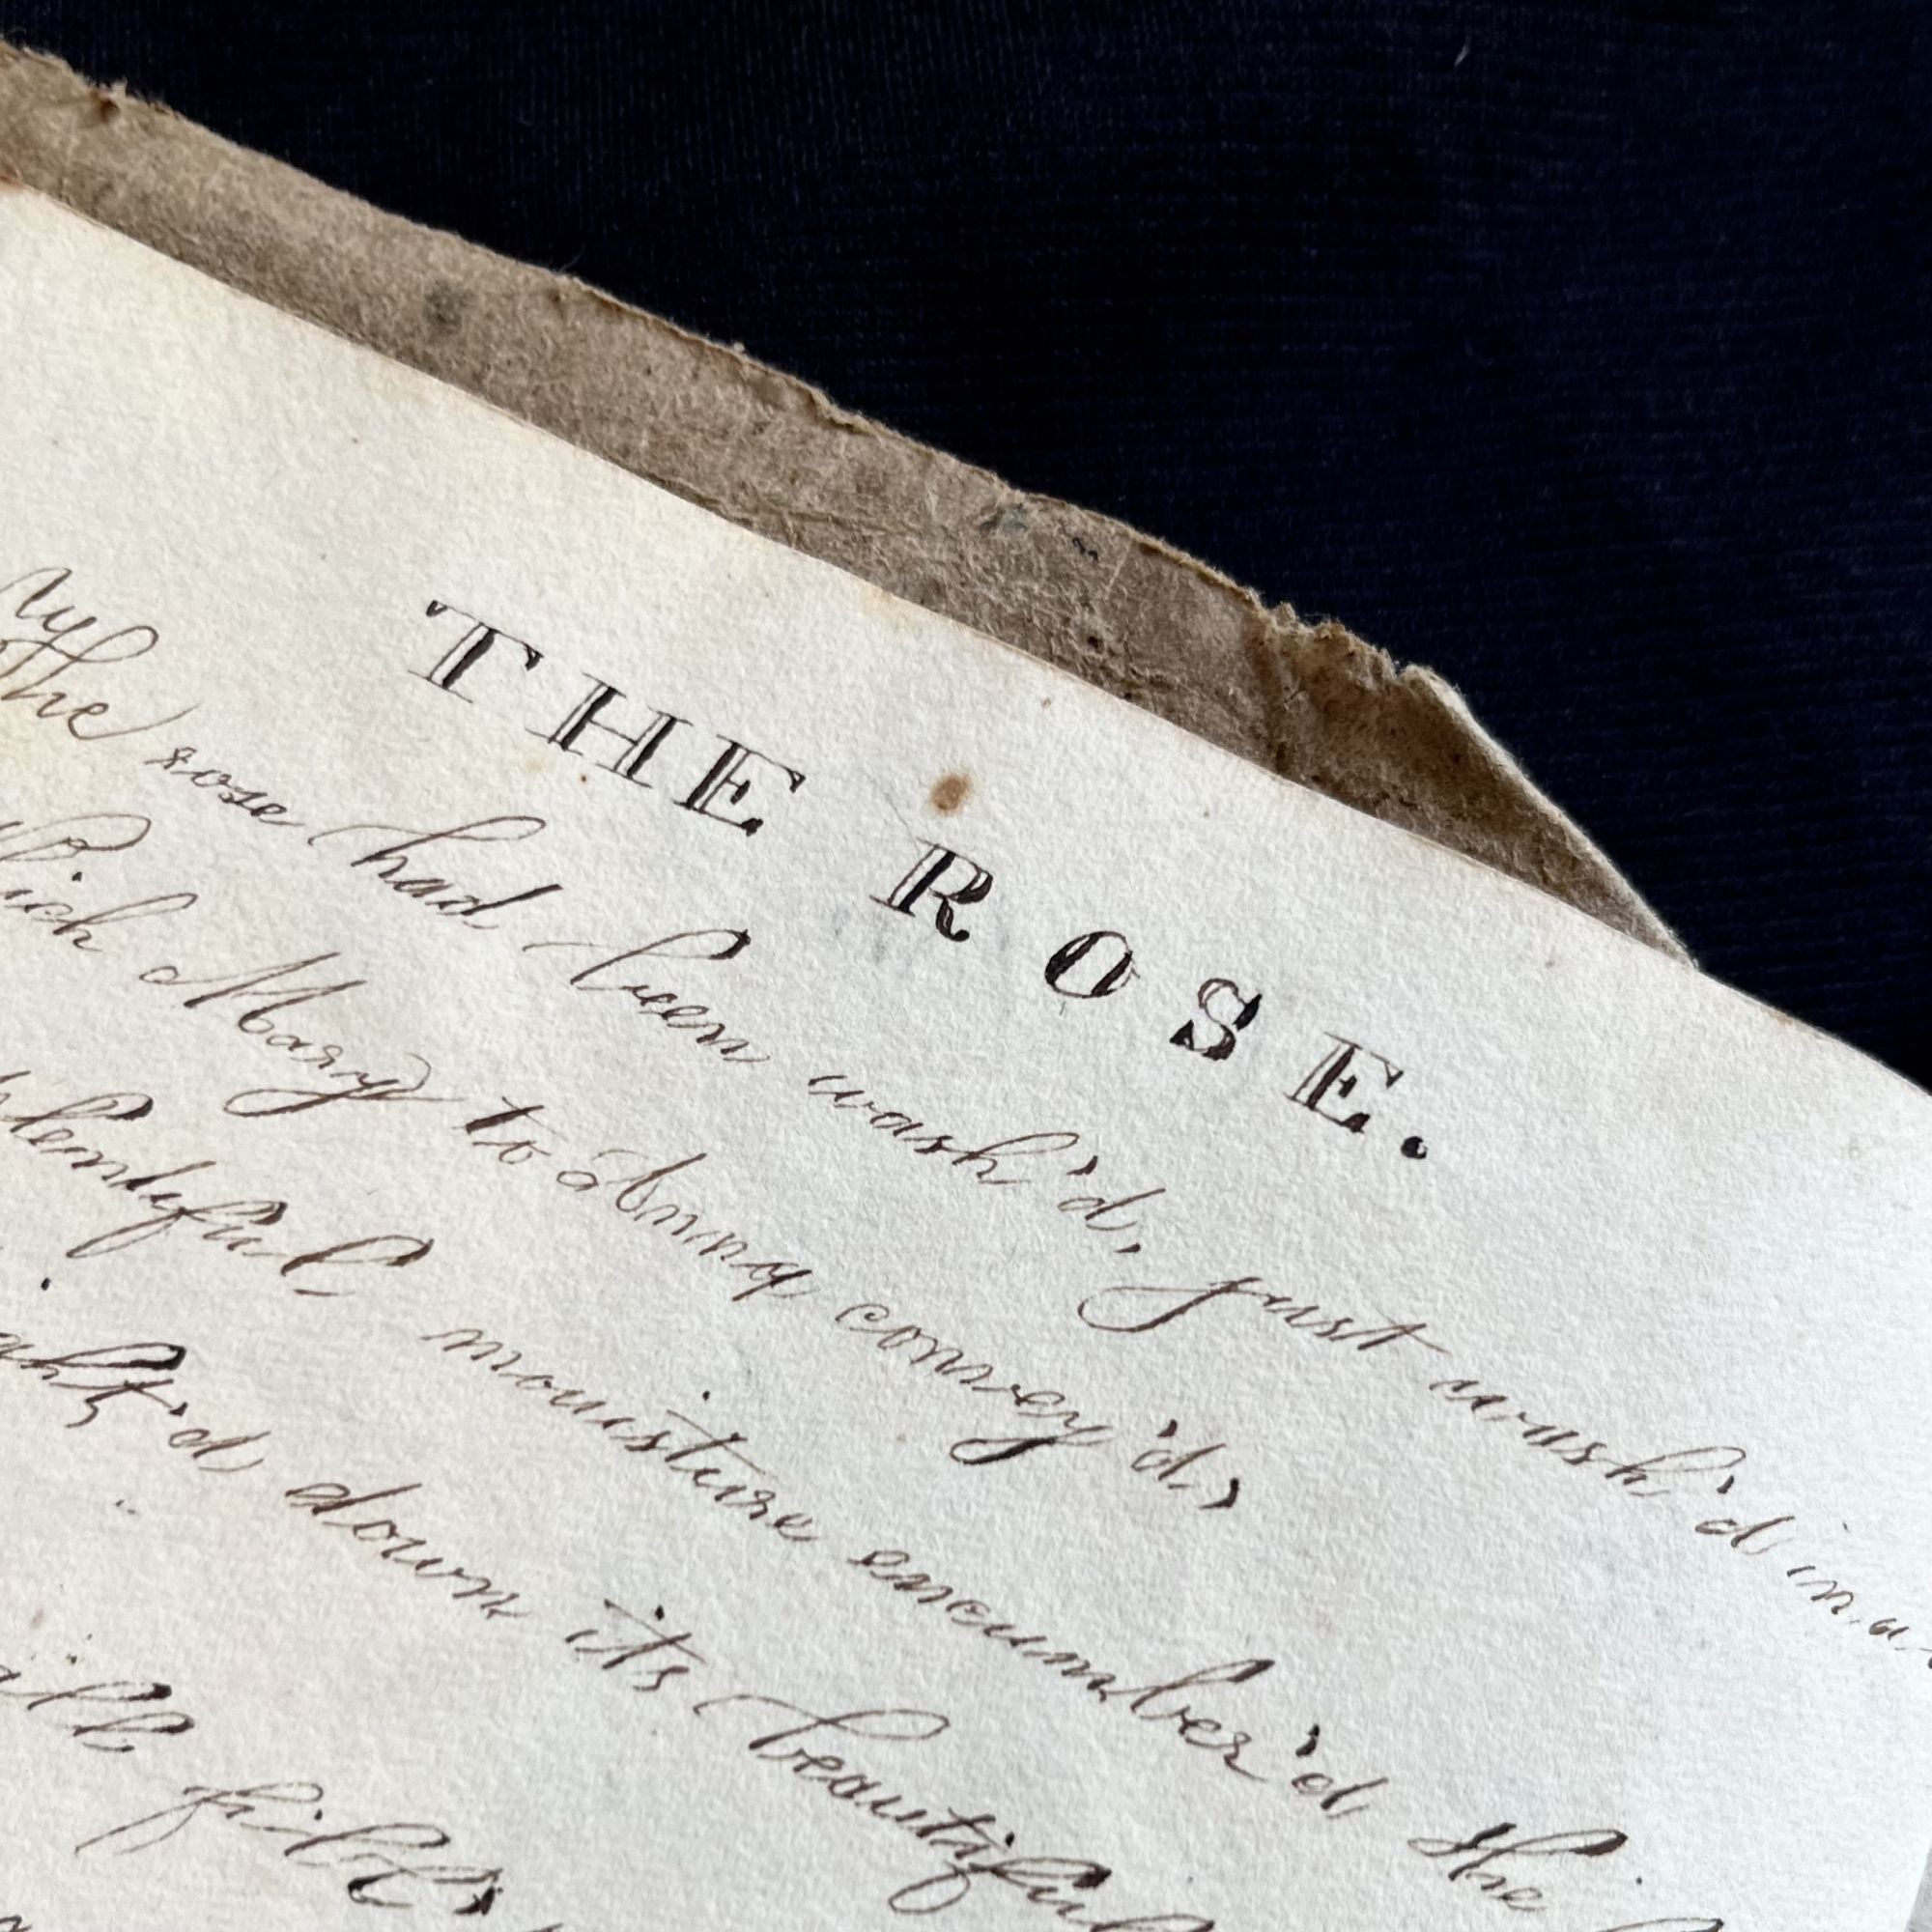 THE ROSE.
The rose had been wash'd, just wash'd in a
Which Mary to Anna convey'd,
plentyful mouisture encumber'd the
ght'd down its beautiful
fill'd